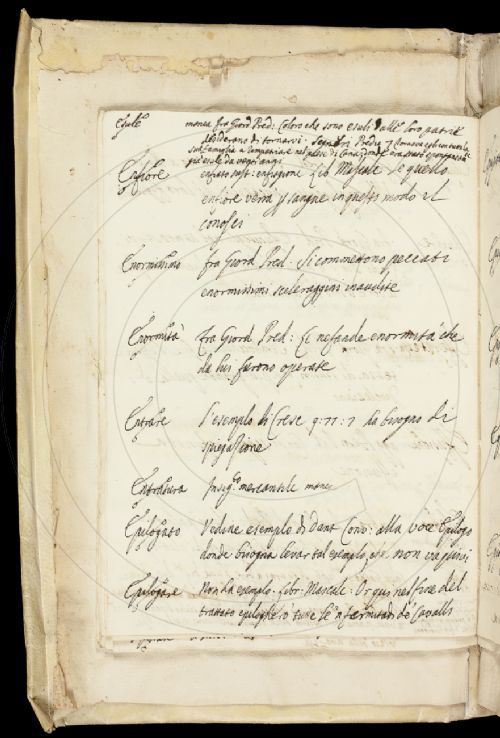 Esule manca fra Giord Pred: Coloro che sono esuli dalle loro patrie
desiderano di tornarvi. Segneri Predic 7
Enfiore enfiato sust: enfiagione Lib Mascalc Se quello
enfiore verrà p sangue in questo modo il
conosci
Enormissimo fra Giord Pred. Si commettono peccati
enormissimi sceleraggini inaudite
Enormità fra Giord Pred: Le nefande enormità che
da lui furono operate
Entrare l'esempio di Crese 9:77:7 ha bisogno di
spiegazione
Entratura In sigto mercantile manca
Epilogato Vedine esempio di Dant Conv: alla voce Epilogo
donde bisogna levar tal esempio, che non va quivi
Epilogare Non ha esempio. Libr: Mascalc: Or qui nel fine del
trattato epilogherò tutte le infermitadi de Cavalli